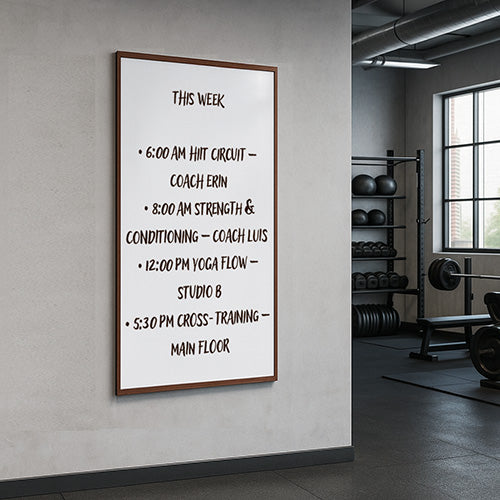 THIS WEEK
• 6:00 AM HIIT CIRCUIT –
COACH ERIN
• 8:00 AM STRENGTH &
CONDITIONING – COACH LUIS
• 12:00 PM YOGA FLOW –
STUDIO B
• 5:30 PM CROSS-TRAINING –
MAIN FLOOR